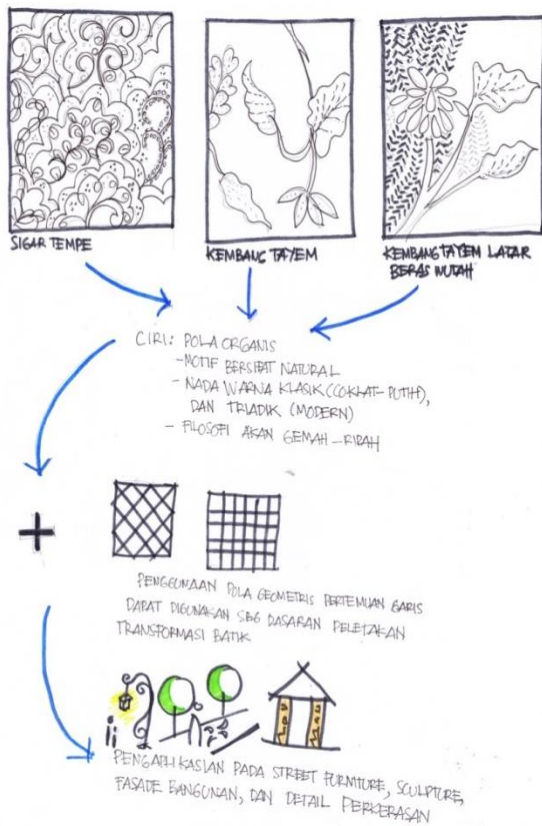 SIGAR TEMPE
KEMBANG TAYEM
KEMBANG TAYEM LATAR
BERAS WUTAH
CIRI: POLA ORGANIS
-MOTIF BERSIFAT NATURAL
- NADA WARNA KLASIK (COKLAT-PUTIH),
DAN TRIADIK (MODERN)
- FILOSOFI AKAN GEMAH-RIPAH
+
PENGGUNAAN POLA GEOMETRIS PERTEMUAN GARIS
DAPAT DIGUNAKAN SBG DASARAN PELETAKAN
TRANSFORMASI BATIK
PENGAPLIKASIAN PADA STREET FURNITURE, SCULPTURE,
FASADE BANGUNAN, DAN DETAIL PERKERASAN